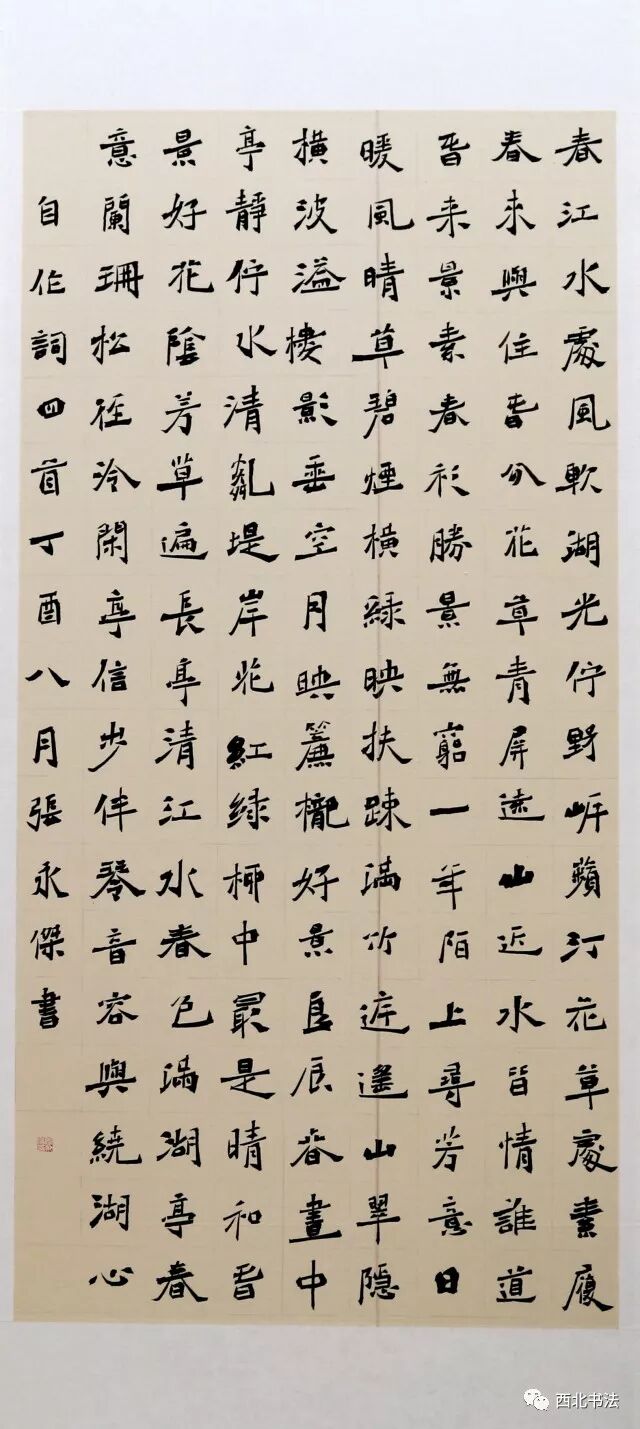 春江水處風軟湖光佇野㟁蘋汀花草處素履
春來興住旹分花草青屏遠山近水皆情誰道
旹来景素春衫勝景無窮一年陌上尋芳意日
暖風晴草碧煙橫綠映扶踈滿竹遮遙山翠隱
橫波溢樓影垂空月映簾櫳好景良辰春晝中
亭靜佇水清亂堤岸花紅绿柳中最是晴和旹
景好花陰芳草遍長亭清江水春色滿湖亭春
意蘭珊松徑泠閑亭信步伴琴音容與繞湖心
自作詞四首丁酉八月張永傑書
西北书法